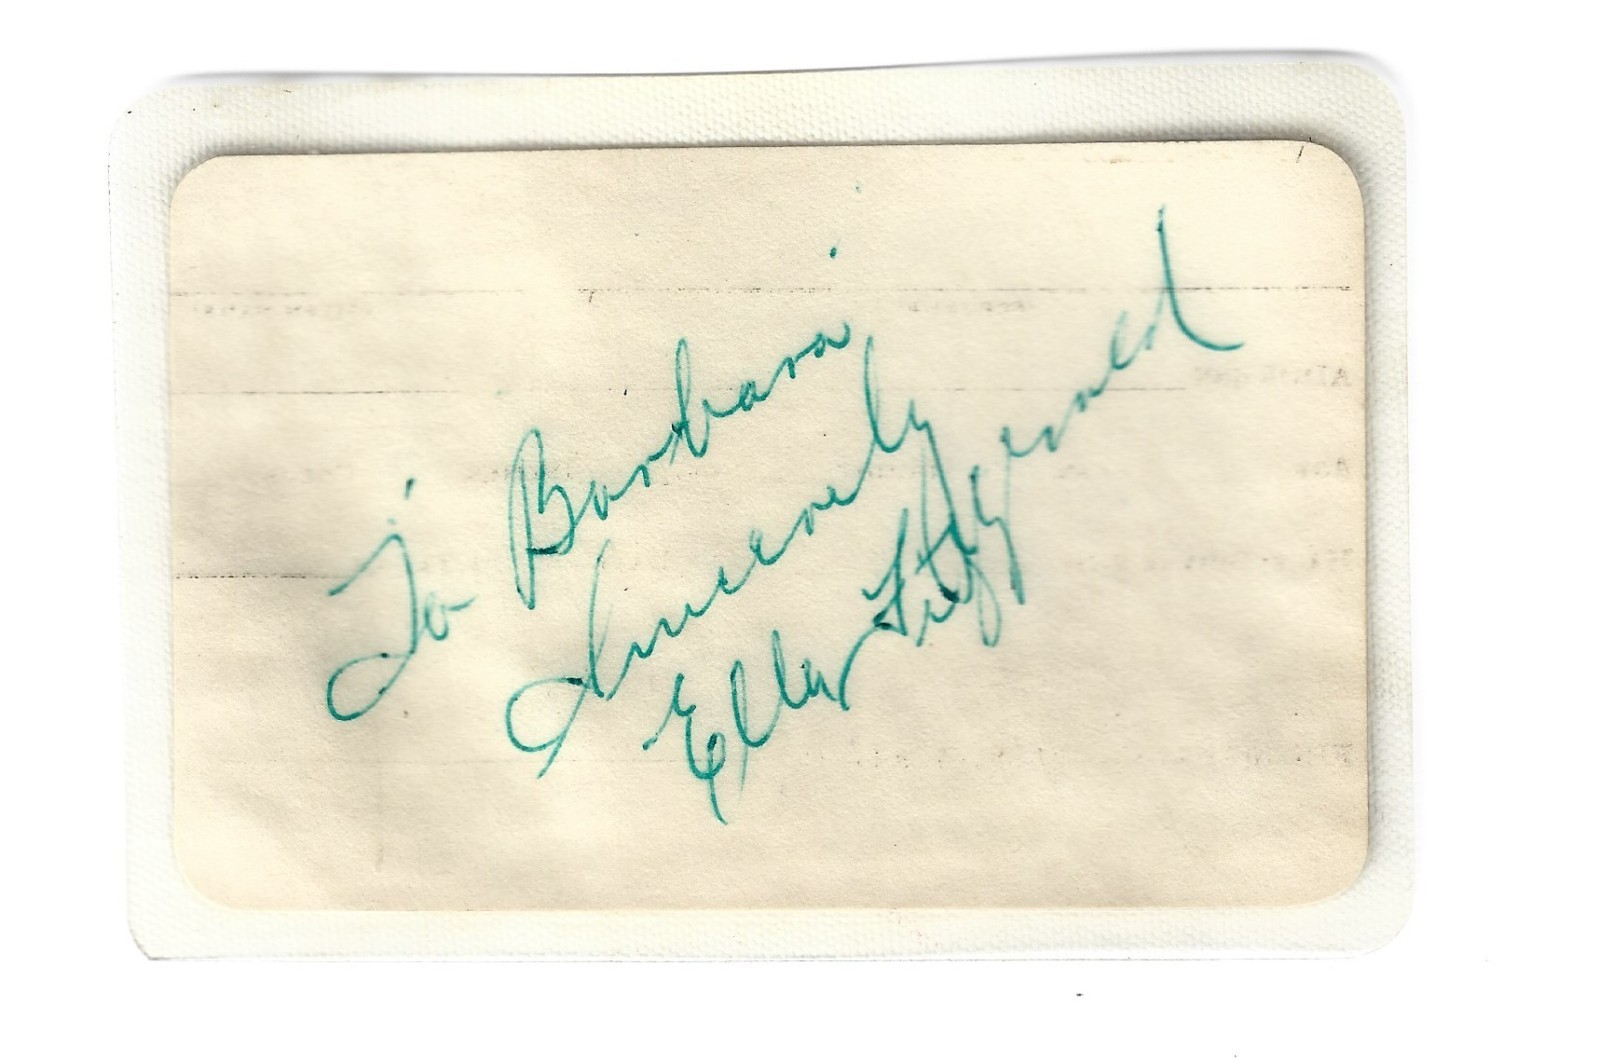 To Barbara
Sincerely
Ella Fitzgerald